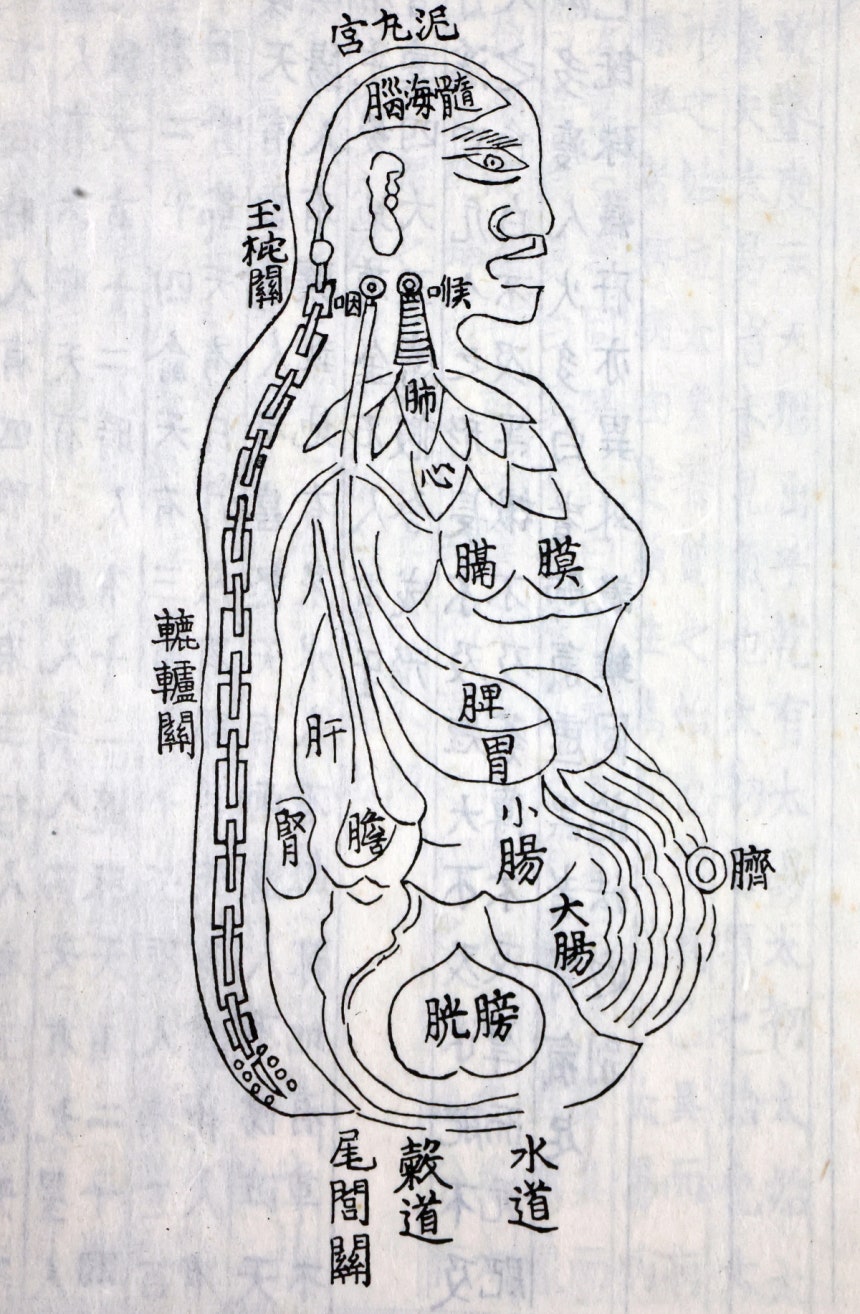 泥丸宮
髓海腦
玉枕關
咽
喉
肺
心
膈
膜
脾
胃
肝
腎
膽
小腸
臍
大腸
膀胱
轆轤關
尾閭關
穀道
水道